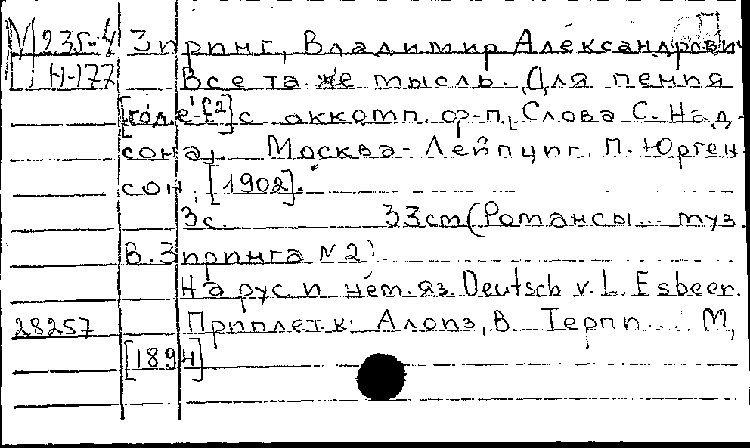 М 235-4 Зиринг, Владимир Александрович
Н-177 Все та же мысль. Для пения
[годе¹-f²] с аккомп. ф-п, Слова С. Над-
сона. Москва-Лейпциг. П. Юрген
сон, [1902].
3с. 33cm (Романсы... муз.
В. Зиринга №2)
На рус. и нем. яз. Deutsch v. L. Esbeer.
28257 Приплет к: Алоиз, В. Терпи... М,
[1894]